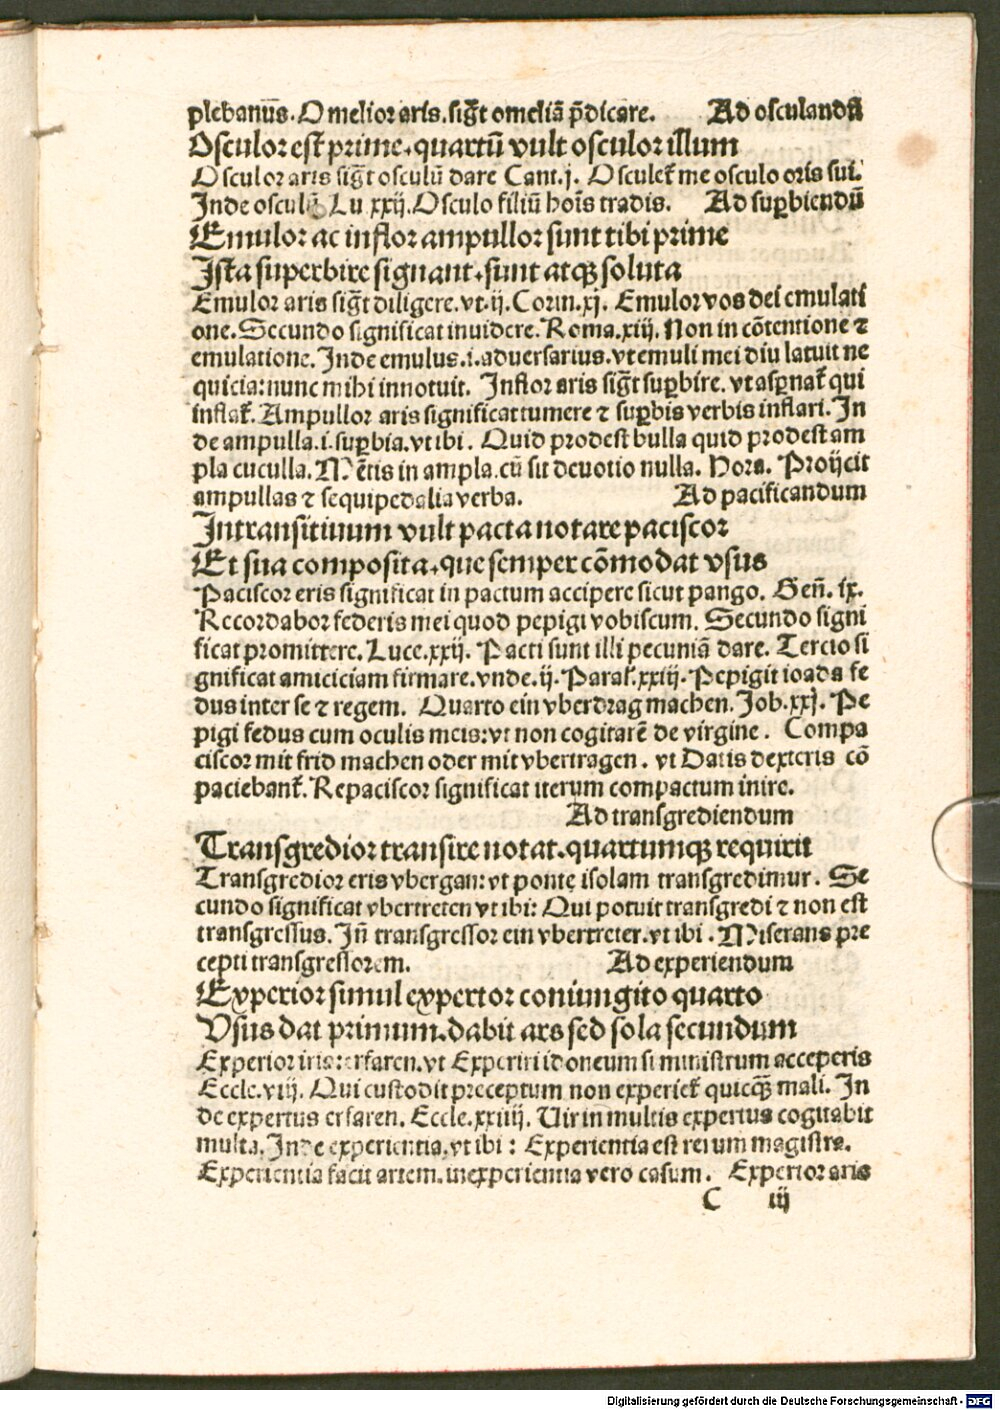 plebanũs. Omelior aris. sigt̃ omeliã p̃dicare. Ad osculandũ
Osculor est prime. quartũ vult osculor illum
Osculor aris sigt̃ osculũ dare Cant.j. Osculet̃ me osculo oris sui.
Inde osculũ. Lu xxij. Osculo filiũ hoĩs tradis. Ad sup̱biendũ
Emulor ac inflor ampullor sunt tibi prime
Ista superbire signant. sunt atqꝫ soluta
Emulor aris sigt̃ diligere. vt. ij. Corin. xj. Emulor vos dei emulati
one. Secundo significat inuidere. Roma. xiij. Non in cõtentione ⁊
emulatione. Inde emulus. i. aduersarius. vt emuli mei diu latuit ne
quicia: nunc mihi innotuit. Inflor aris sigt̃ sup̱bire. vt asp̱nat̃ qui
inflat̃. Ampullor aris significat tumere ⁊ sup̱bis verbis inflari. In
de ampulla. i. sup̱bia. vt ibi. Quid prodest bulla quid prodest am
pla cuculla. Mẽtis in ampla. cũ sit deuotio nulla. Hora. Proijcit
ampullas ⁊ sequipedalia verba. Ad pacificandum
Intransitiuum vult pacta notare paciscor
Et sua composita. que semper cõmodat vsus
Paciscor eris significat in pactum accipere sicut pango. Geñ. ix.
Recordabor federis mei quod pepigi vobiscum. Secundo signi
ficat promittere. Luce. xxij. Pacti sunt illi pecuniã dare. Tercio si
gnificat amiciciam firmare. vnde. ij. Paral̃. xxiij. Pepigit ioada fe
dus inter se ⁊ regem. Quarto ein vberdrag machen. Job. xxj. Pe
pigi fedus cum oculis meis: vt non cogitarẽ de virgine. Compa
ciscor mit frid machen oder mit vbertragen. vt Datis dexteris cõ
paciebant̃. Repaciscor significat iterum compactum inire.
Ad transgrediendum
Transgredior transire notat. quartumqꝫ requirit
Transgredior eris vbergan: vt ponte isolam transgredimur. Se
cundo significat vbertreten vt ibi: Qui potuit transgredi ⁊ non est
transgressus. Iñ transgressor ein vbertreter. vt ibi. Miserans pre
cepti transgressorem. Ad experiendum
Experior simul expertor coniungito quarto
Vsus dat primum. dabit ars sed sola secundum
Experior iris: erfaren. vt Experiri idoneum si ministrum acceperis
Eccle. viij. Qui custodit preceptum non experiet̃ quicqꝫ mali. In
de expertus erfaren. Eccle. xxiiij. Uir in multis expertus cogitabit
multa. Inde experientia. vt ibi: Experientia est rerum magistra.
Experientia facit artem. inexperientia vero casum. Experior aris
C iij
Digitalisierung gefördert durch die Deutsche Forschungsgemeinschaft - DFG